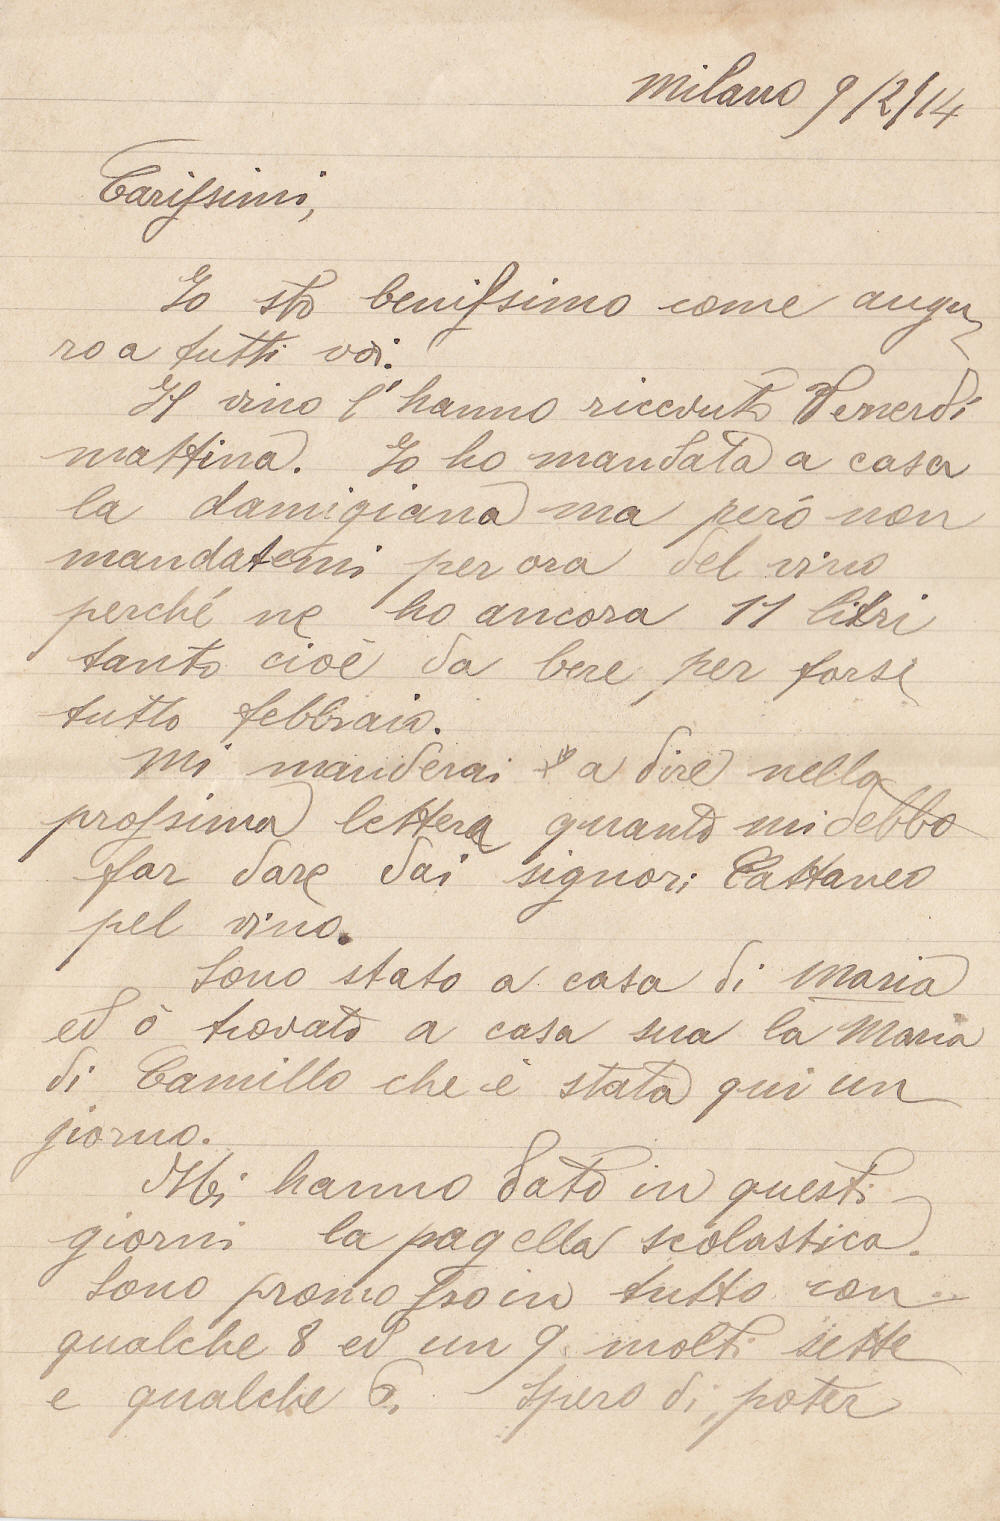 Milano 9/2/14
Carissimi,
Io stò benissimo come augu
ro a tutti voi.
Il vino l'hanno ricevuto Venerdì
mattina. Io ho mandata a casa
la damigiana ma però non
mandatemi per ora del vino
perché ne ho ancora 11 litri
tanto cioè da bere per forse
tutto febbraio.
Mi manderai a dire nella
prossima lettera quanto mi debbo
far dare dai signori Cattaneo
pel vino.
Sono stato a casa di Maria
ed ò trovato a casa sua la Maria
di Camillo che è stata qui un
giorno.
Mi hanno dato in questi
giorni la pagella scolastica.
Sono promosso in tutto con
qualche 8 ed un 9 molti sette
e qualche 6. Spero di poter